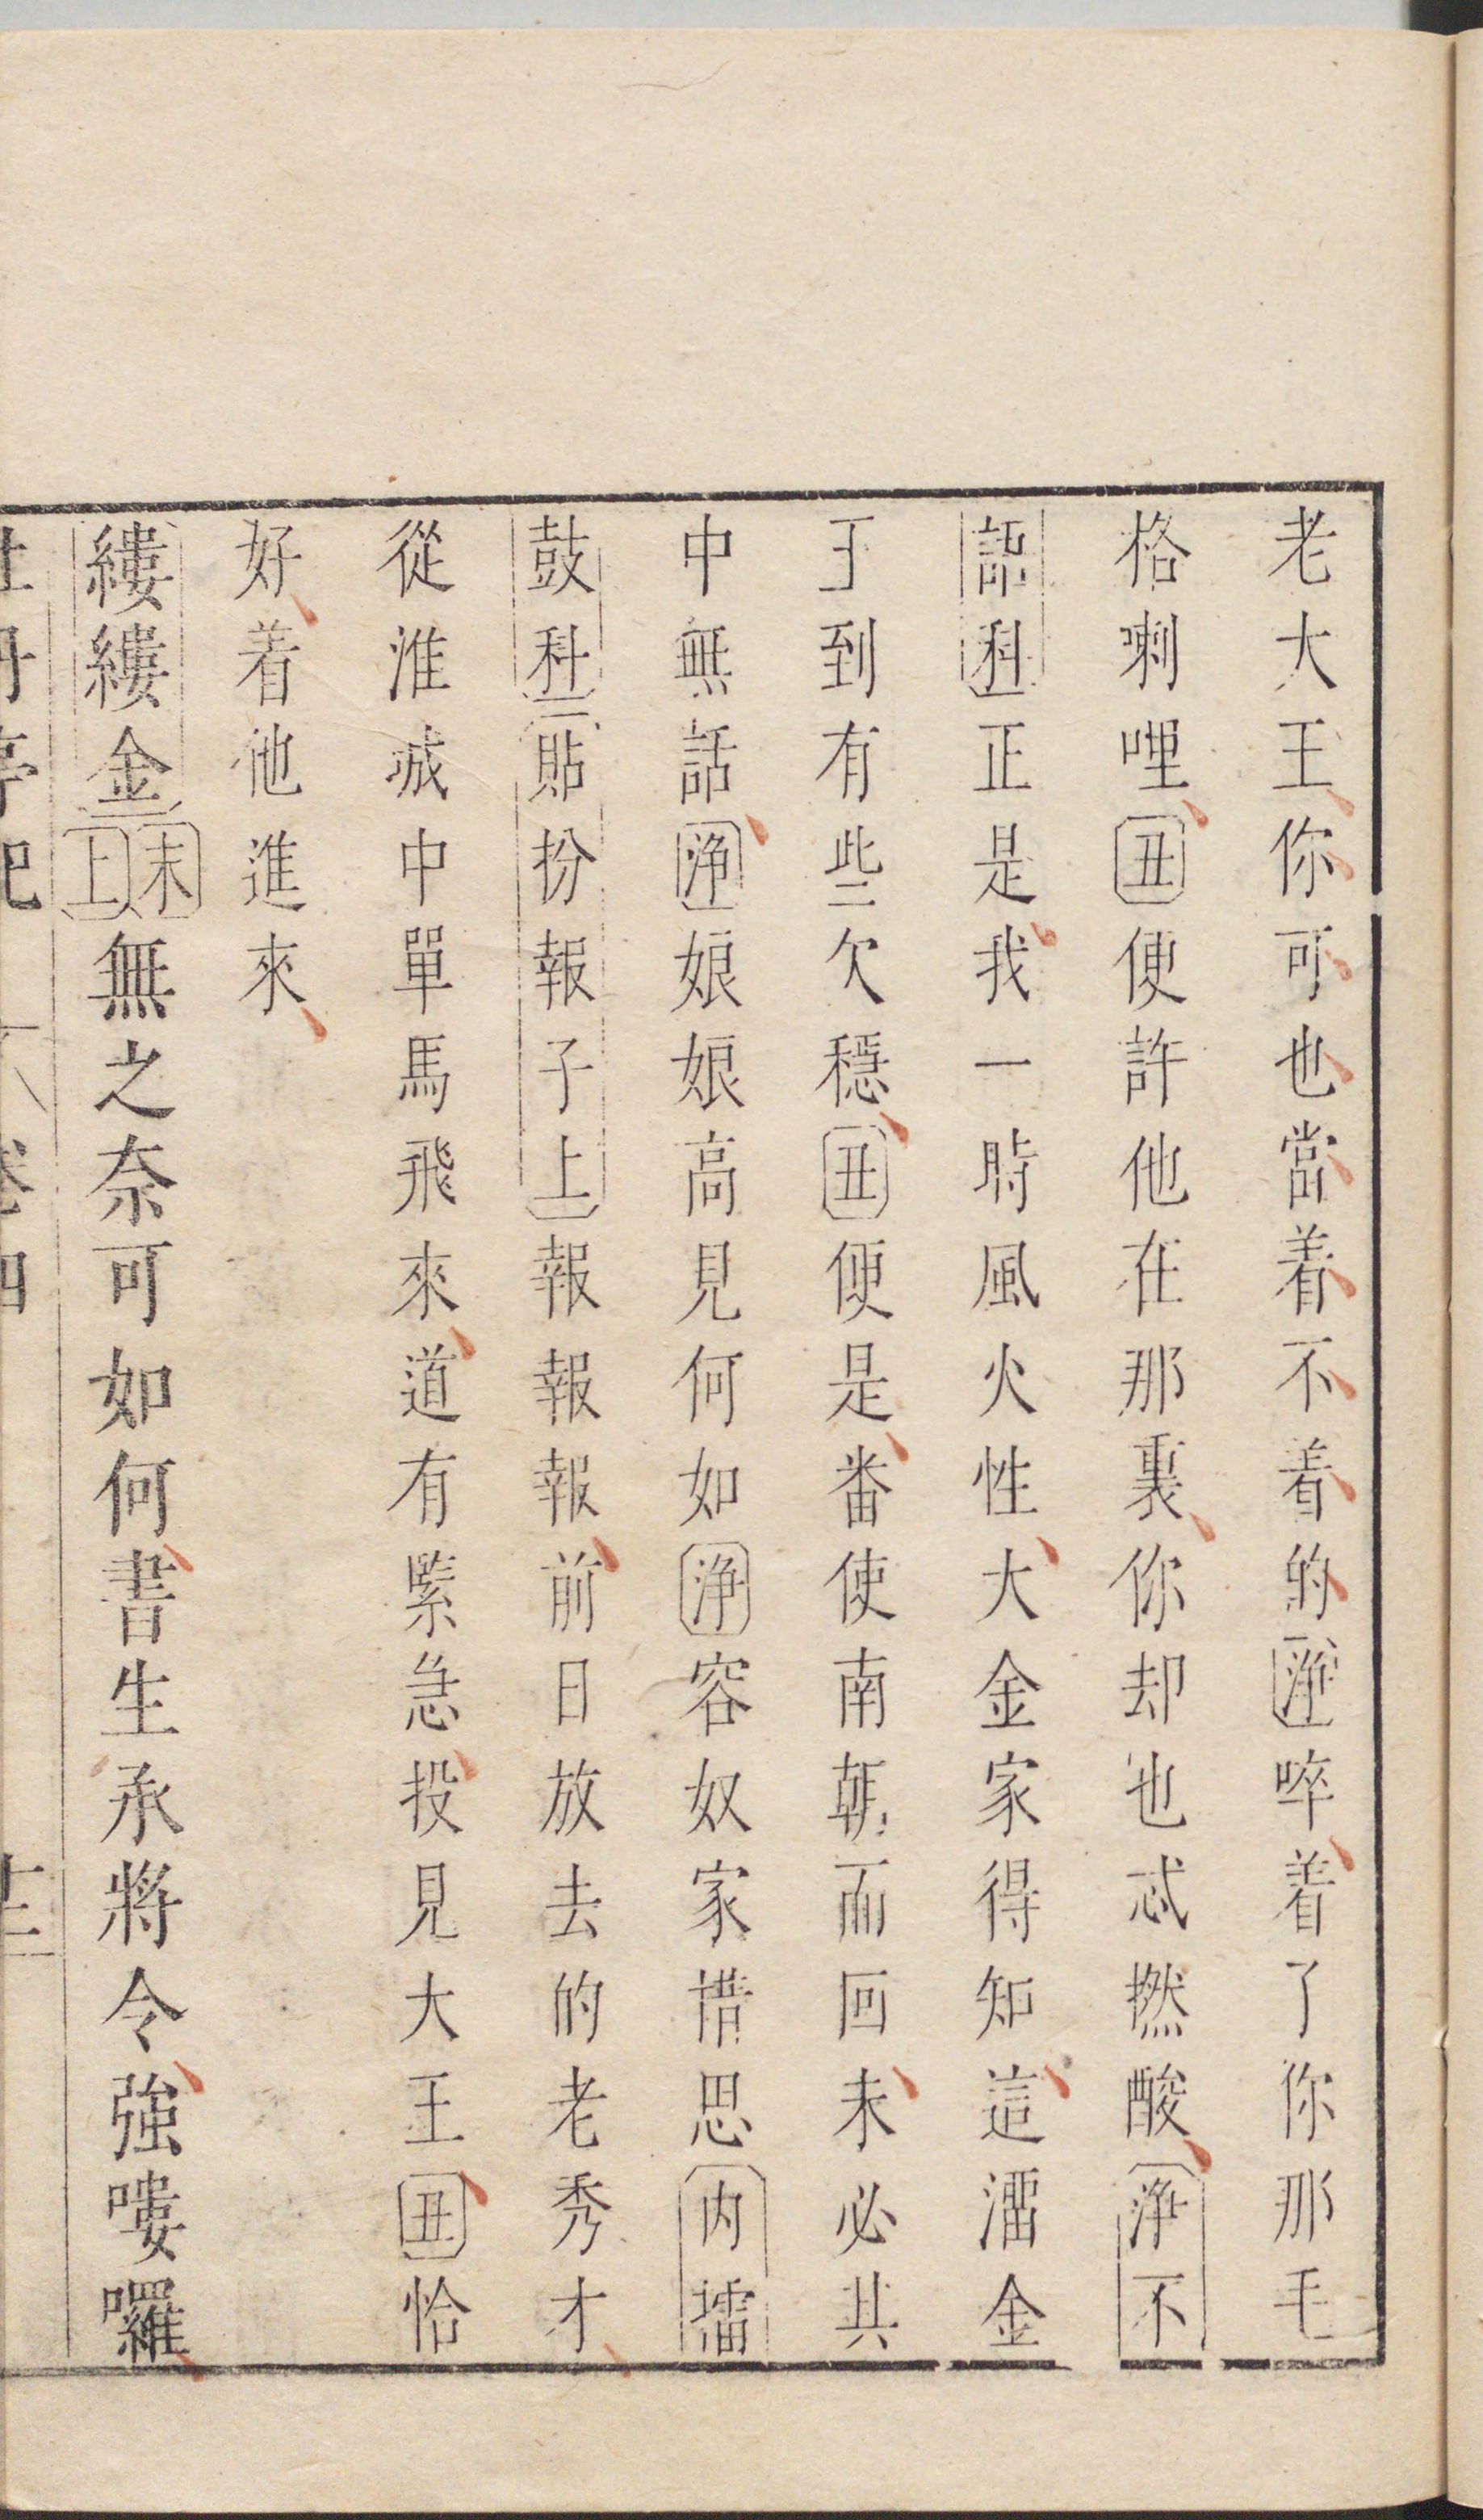 老大王你可也當着不着的淨啐着了你那毛
格喇哩丑便許他在那裏你却也忒撚酸淨不
語科正是我一時風火性大金家得知這溜金
王到有些欠穩丑便是番使南朝而回未必其
中無話淨娘娘高見何如淨容奴家措思內擂
鼓科貼扮報子上報報報前日放去的老秀才
從淮城中單馬飛來道有緊急投見大王丑恰
好着他進來
縷縷金末上無之奈可如何書生承將令強嘍囉
牡丹亭記 卷四